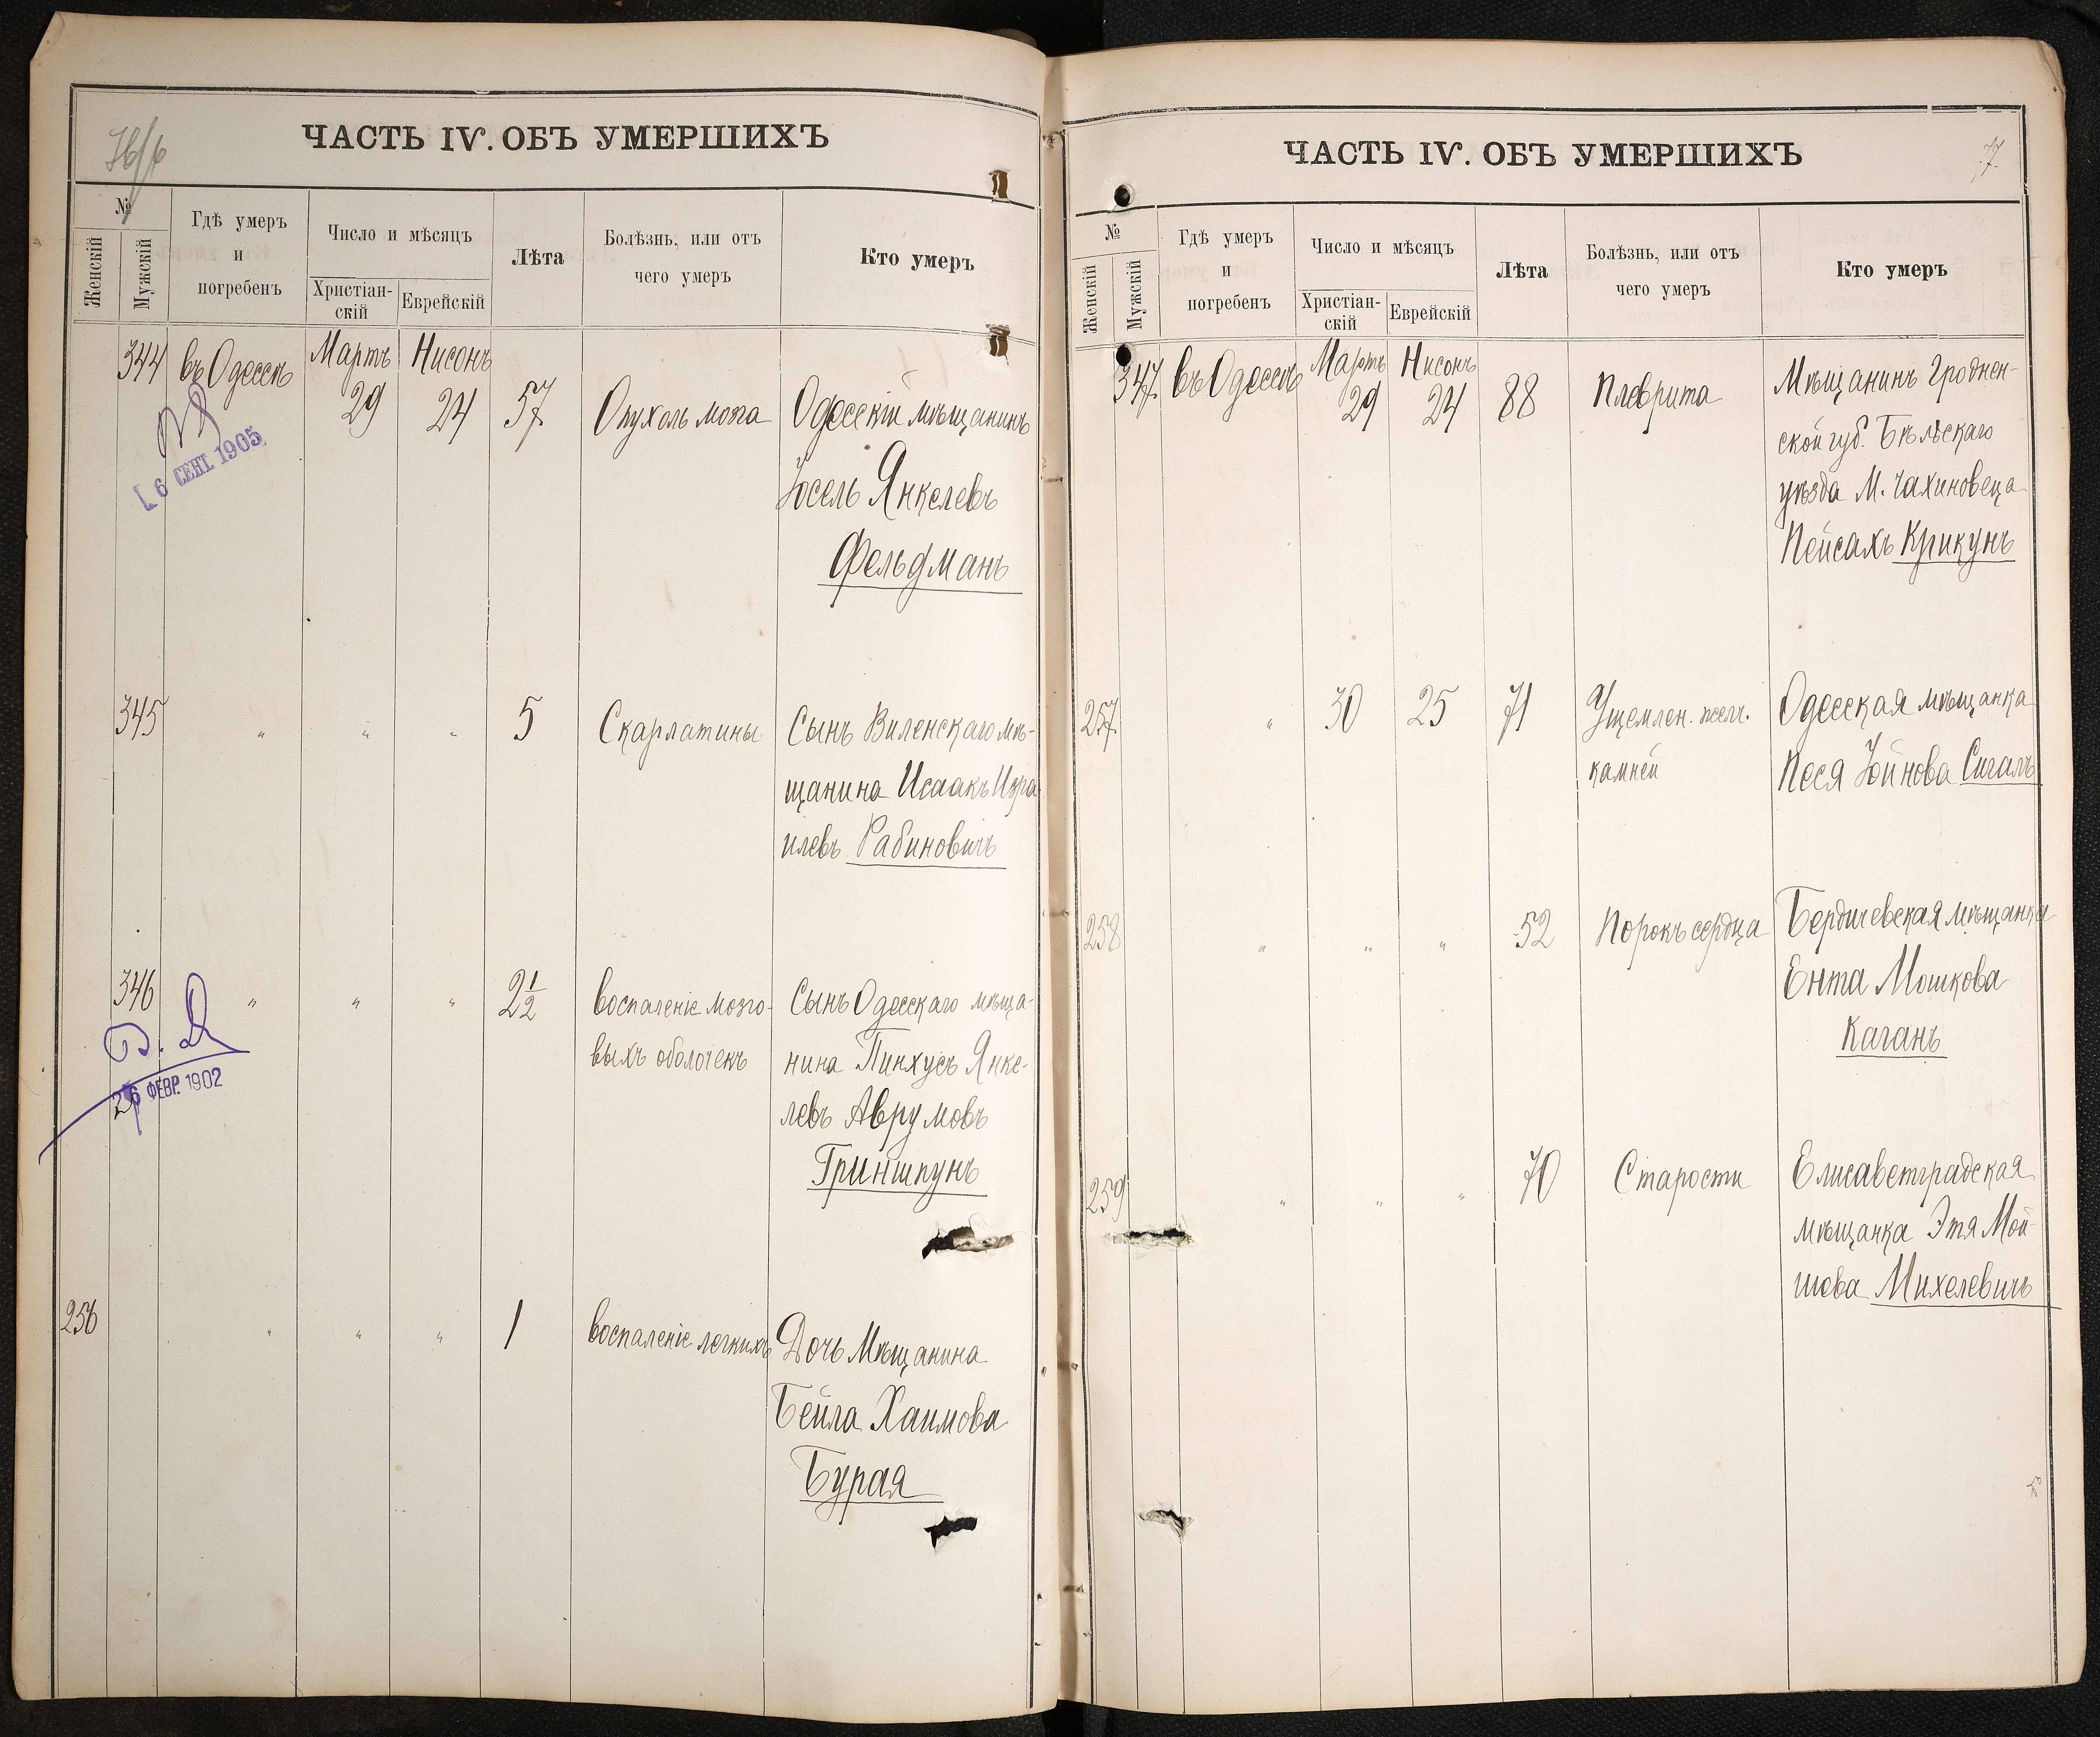 ЧАСТЬ IV. ОБЪ УМЕРШИХЪ
№
Женскій
Мужскій
Гдѣ умеръ
и
погребенъ
Число и мѣсяцъ
Христіан-
скій
Еврейскій
Лѣта
Болѣзнь, или отъ
чего умеръ
Кто умеръ
344 въ Одессѣ Мартъ 29 Нисонъ 24 57 Опухоль мозга Одесскій мѣщанинъ
Іосель Янкелевъ
Фельдманъ
6 СЕНТ. 1905
345 " " " 5 Скарлатины Сынъ Виленскаго мѣ-
щанина Исаакъ Изра-
илевъ Рабиновичъ
346 " " " 2 1/2 Воспаленіе мозго- Сынъ Одесскаго мѣща-
выхъ оболочекъ нина Пинхусъ Янке-
левъ Аврумовъ
Гриншпунъ
26 ФЕВР. 1902
256 " " " 1 Воспаленіе легкихъ Дочь Мѣщанина
Бейла Хаимова
Бурая
ЧАСТЬ IV. ОБЪ УМЕРШИХЪ
77
№
Женскій
Мужскій
Гдѣ умеръ
и
погребенъ
Число и мѣсяцъ
Христіан-
скій
Еврейскій
Лѣта
Болѣзнь, или отъ
чего умеръ
Кто умеръ
347 въ Одессѣ Мартъ 29 Нисонъ 24 88 Плеврита Мѣщанинъ Гроднен-
ской губ. Бѣльскаго
уѣзда М. Чахиновеца
Пейсахъ Крикунъ
257 " 30 25 71 Ущемлен. желч. Одесская мѣщанка
камней Песя Іойнова Сигалъ
258 " " " 52 Порокъ сердца Бердичевская мѣщанка
Ента Мошкова
Каганъ
259 " " " 70 Старости Елисаветградская
мѣщанка Этя Мой-
шова Михелевичъ